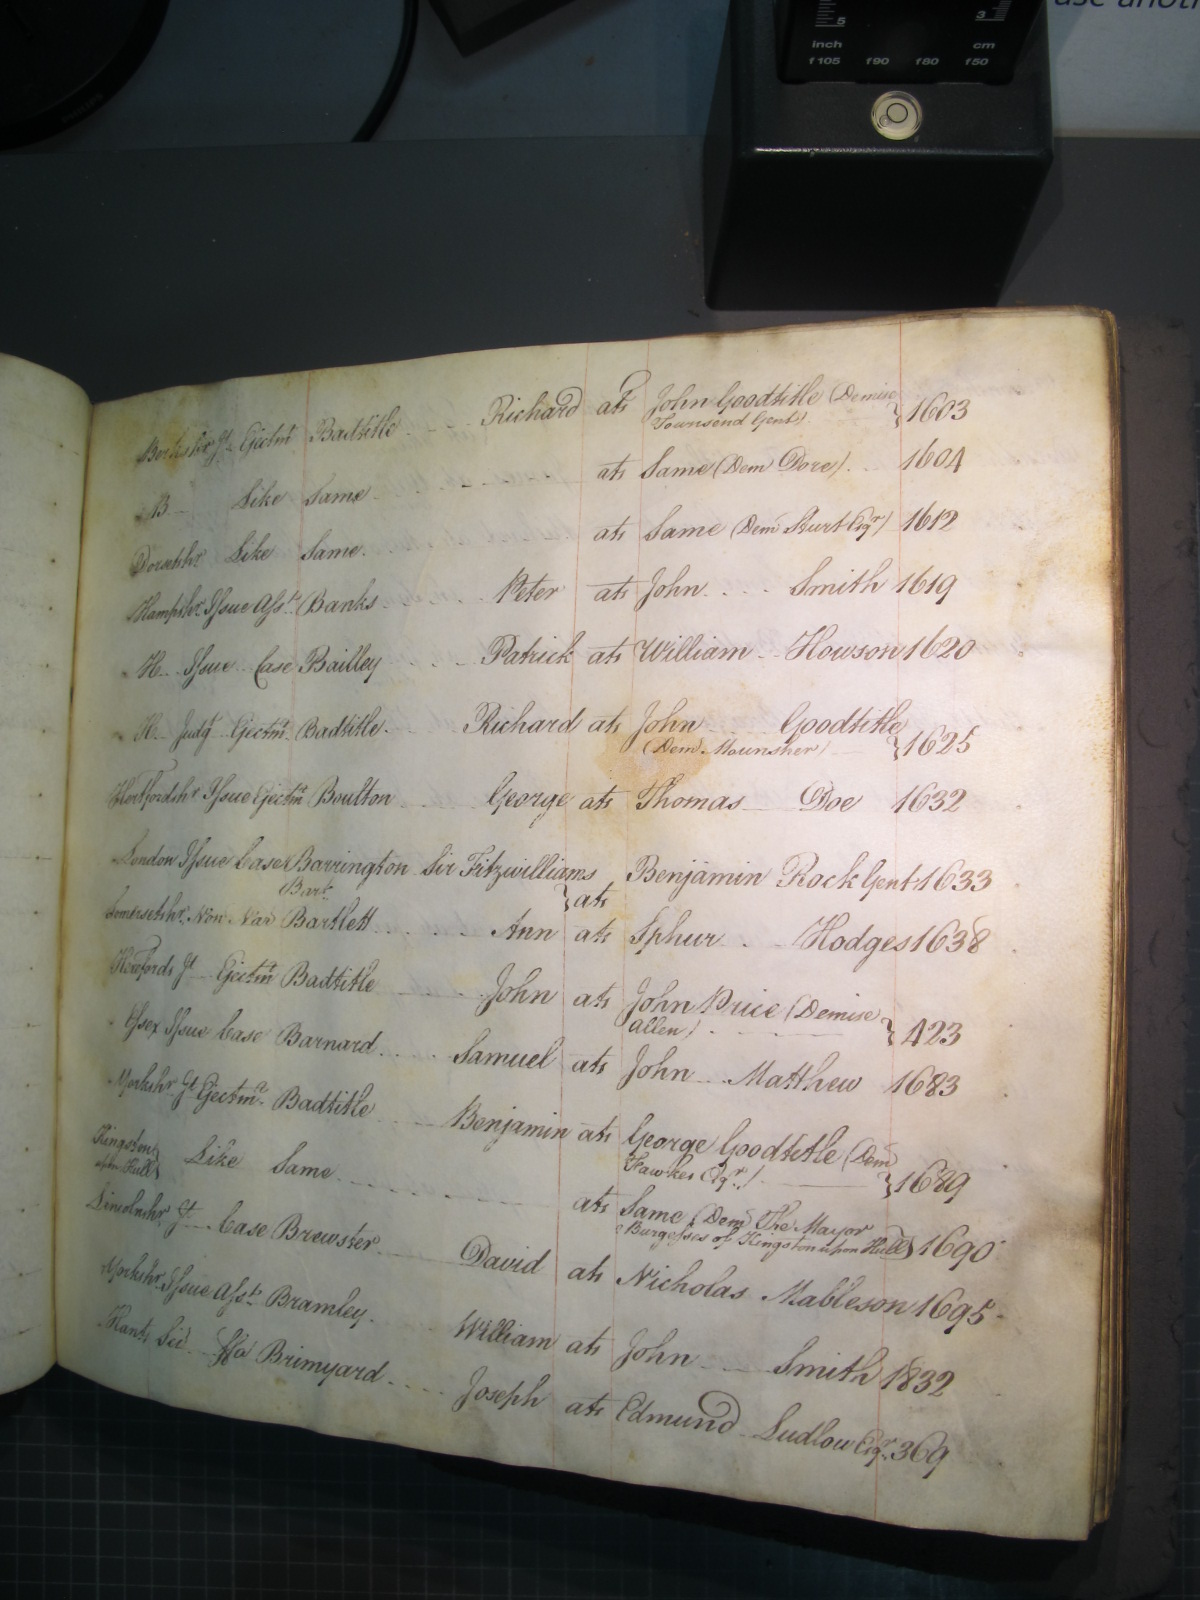 use anoth
5 3
inch cm
f105 f90 f80 f50
Berkshr Jt. Ejectmt Badtitle Richard ats John Goodtitle (Demise
Townsend Gent) } 1603
B Like Same ats Same (Dem Dore) 1604
Dorsetshr Like Same ats Same (Dem Sturt Esqr) 1612
Hampshr Issue Asst Banks Peter ats John Smith 1619
H Issue Case Bailley Patrick ats William Howson 1620
H Judgt Ejectmt Badtitle Richard ats John Goodtitle
(Dem Mounsher) } 1625
Hertfordshr Issue Ejectmt Boulton George ats Thomas Doe 1632
London Issue Case Barrington Sir Fitzwilliams Benjamin Rock Gent 1633
Bart } ats
Somersetshr Non Nar Bartlett Ann ats Sphur Hodges 1638
Herefords Jt Ejectmt Badtitle John ats John Price (Demise
Allen) } 423
Essex Issue Case Barnard Samuel ats John Matthew 1683
Yorkshr Jt Ejectmt Badtitle Benjamin ats George Goodtitle (Dem
Fawkes Esqr) } 1689
Kingston
upon Hull } Like Same ats Same (Dem The Mayor
Burgesses of Kingston upon Hull) 1690
Lincolnshr Jt Case Brewster David ats Nicholas Mableson 1695
Yorkshr Issue Asst Bramley William ats John Smith 1832
Hants Sci ffa Brimyard Joseph ats Edmund Ludlow Esqr 369